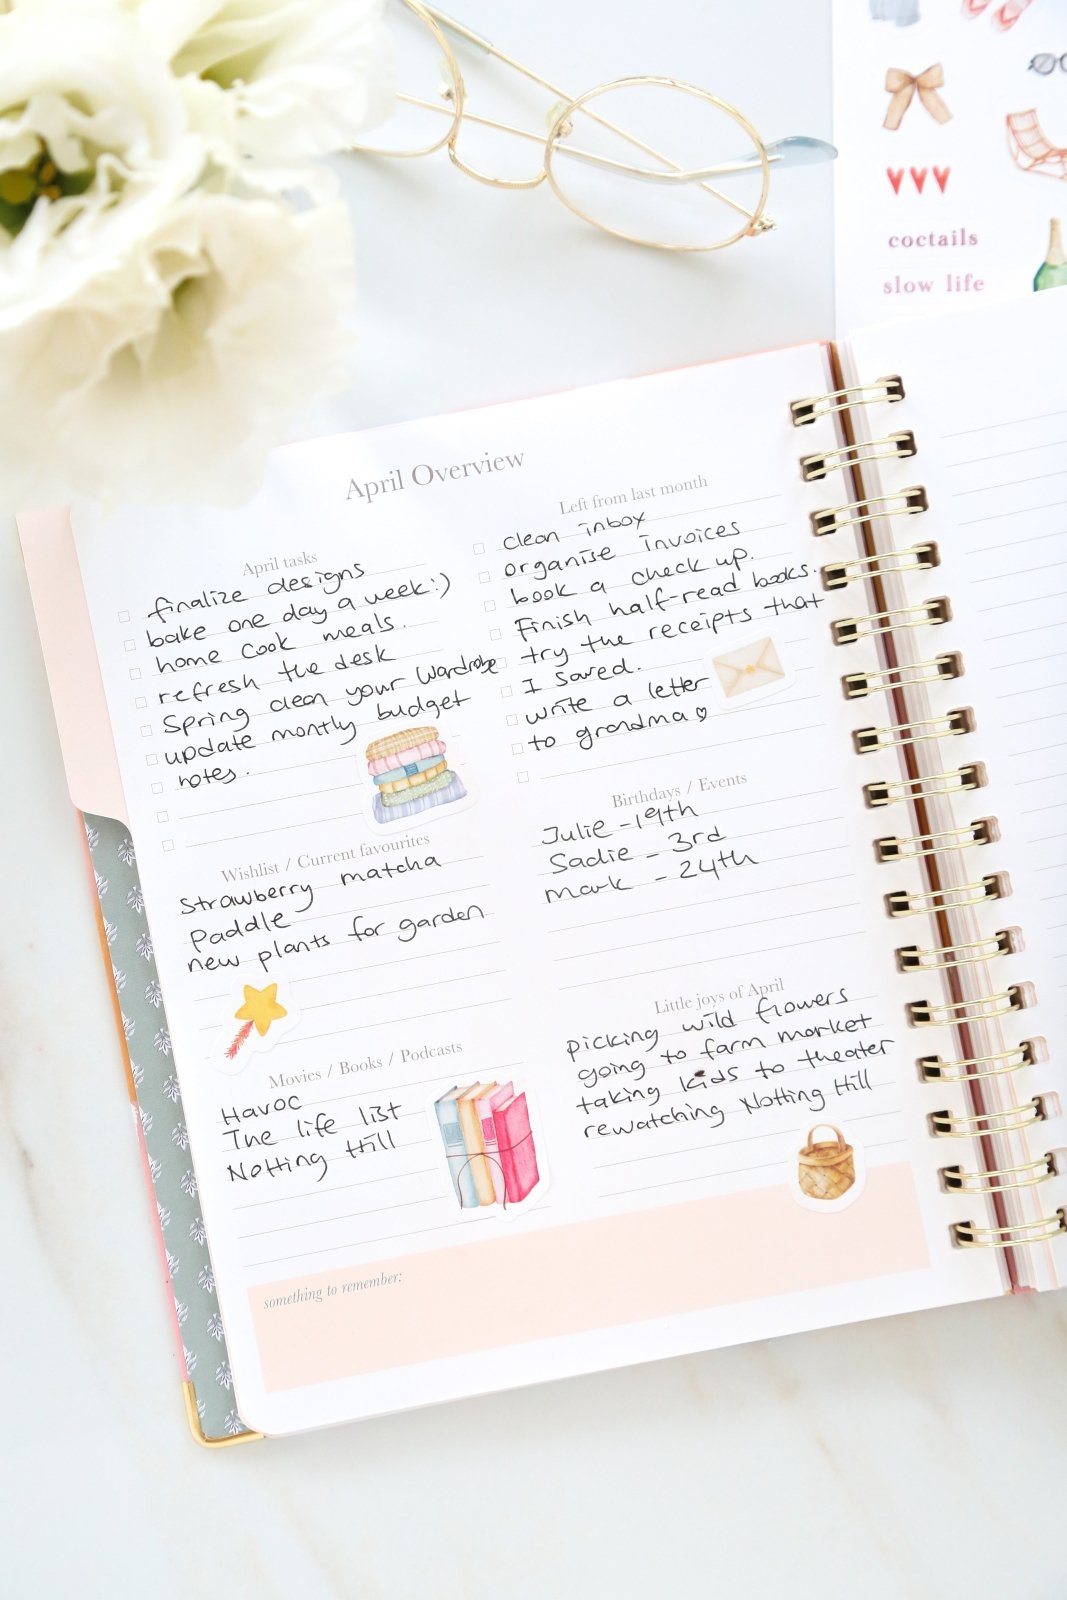 coctails
slow life
April Overview
April tasks
finalize designs
bake one day a week:)
home cook meals.
refresh the desk
Spring clean your wardrobe
update montly budget
notes.
Left from last month
clean inbox
organise invoices
book a check up.
Finish half-read books.
try the receipts that
I saved.
write a letter
to grandma
Wishlist / Current favourites
Strawberry matcha
Paddle
new plants for garden
Birthdays / Events
Julie - 19th
Sadie - 3rd
Mark - 24th
Movies / Books / Podcasts
Havoc
The life list
Notting Hill
Little joys of April
picking wild flowers
going to farm market
taking kids to theater
rewatching Notting Hill
something to remember: